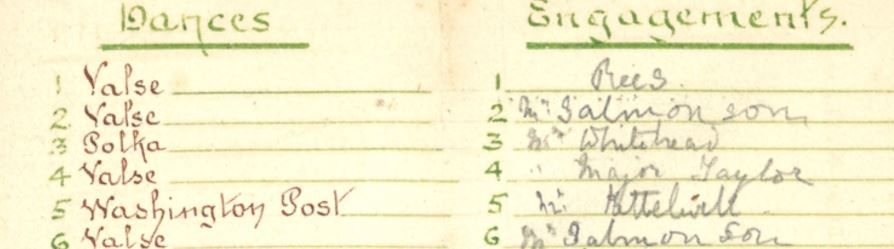 Dances
1 Valse
2 Valse
3 Polka
4 Valse
5 Washington Post
6 Valse
Engagements.
1 Rees
2 Mr Salmonson
3 Mr Whitehead
4 " Major Taylor
5 Mr
6 Mr Salmonson